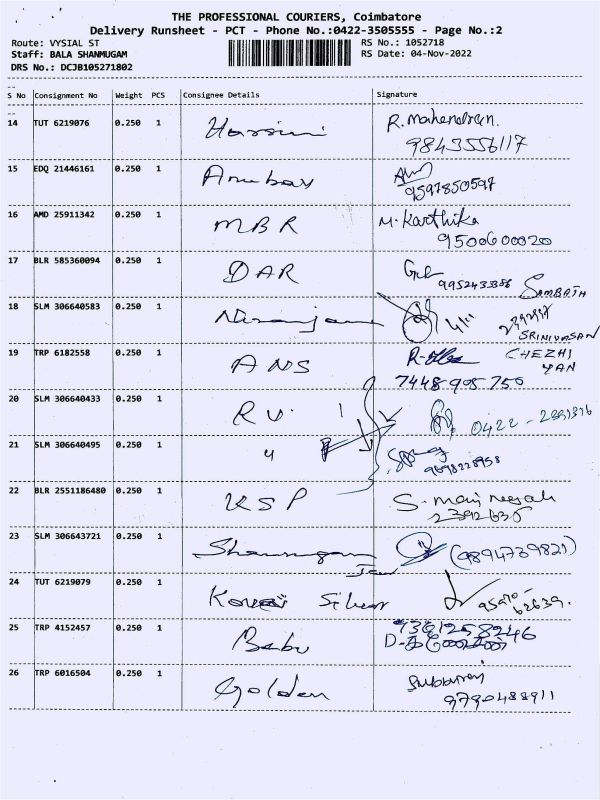 THE PROFESSIONAL COURIERS, Coimbatore
Delivery Runsheet - PCT - Phone No.:0422-3505555 - Page No.:2
Route: VYSIAL ST RS No.: 1052718
Staff: BALA SHANMUGAM RS Date: 04-Nov-2022
DRS No.: DCJB105271802
S No Consignment No Weight PCS Consignee Details Signature
14 TUT 6219076 0.250 1 Harsini R. Mahendran.
9843556117
15 EDQ 21446161 0.250 1 Anubav
9597850597
16 AMD 25911342 0.250 1 MBR M. Karthika
9500600020
17 BLR 585360094 0.250 1 DAR
9952433386 SAMBATH
18 SLM 306640583 0.250 1 Niranjana
SRINIVASAN
19 TRP 6182558 0.250 1 ANS CHEZHI
YAN
7448 905 750
20 SLM 306640433 0.250 1 RV.
0422 -
21 SLM 306640495 0.250 1 4
9698228958
22 BLR 2551186480 0.250 1 KSP
2392635
23 SLM 306643721 0.250 1 Shanmugam (9894739821)
24 TUT 6219079 0.250 1 Kovai Silver
62639.
25 TRP 4152457 0.250 1 Babu
26 TRP 6016504 0.250 1 Golden
9790488911